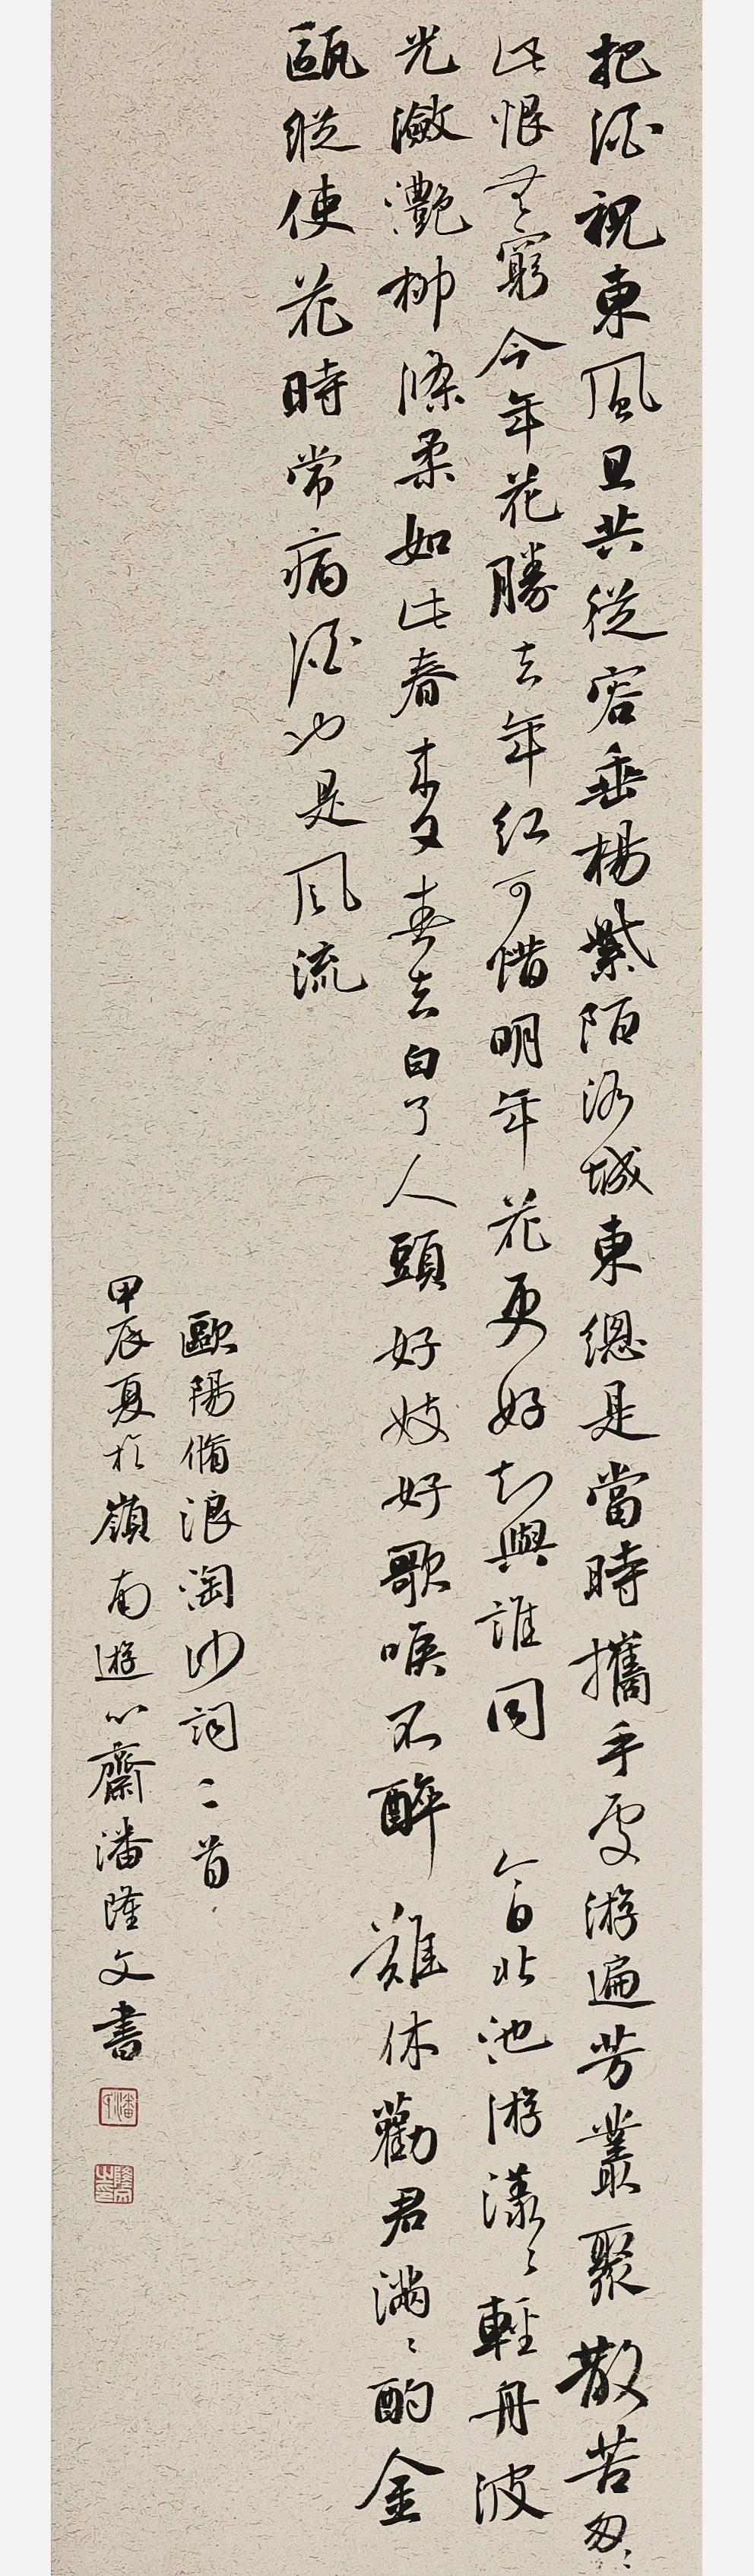 把酒祝東風且共從容垂楊紫陌洛城東總是當時攜手處游遍芳叢聚散苦匆〻
此恨無窮今年花勝去年紅可惜明年花更好知與誰同 今日北池游漾〻輕舟波
光瀲灩柳條柔如此春來又春去白了人頭好妓好歌喉不醉難休勸君滿〻酌金
甌縱使花時常病酒也是風流
歐陽脩浪淘沙詞二首
甲辰夏於嶺南遊心齋潘隆文書